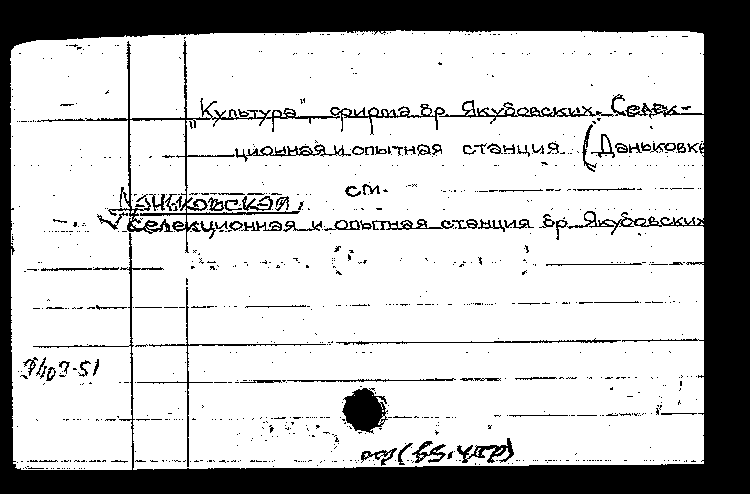 „Культура", фирма бр. Якубовских. Селек-
ционная и опытная станция (Даньковка
см.
Даньковская,
селекционная и опытная станция бр. Якубовских